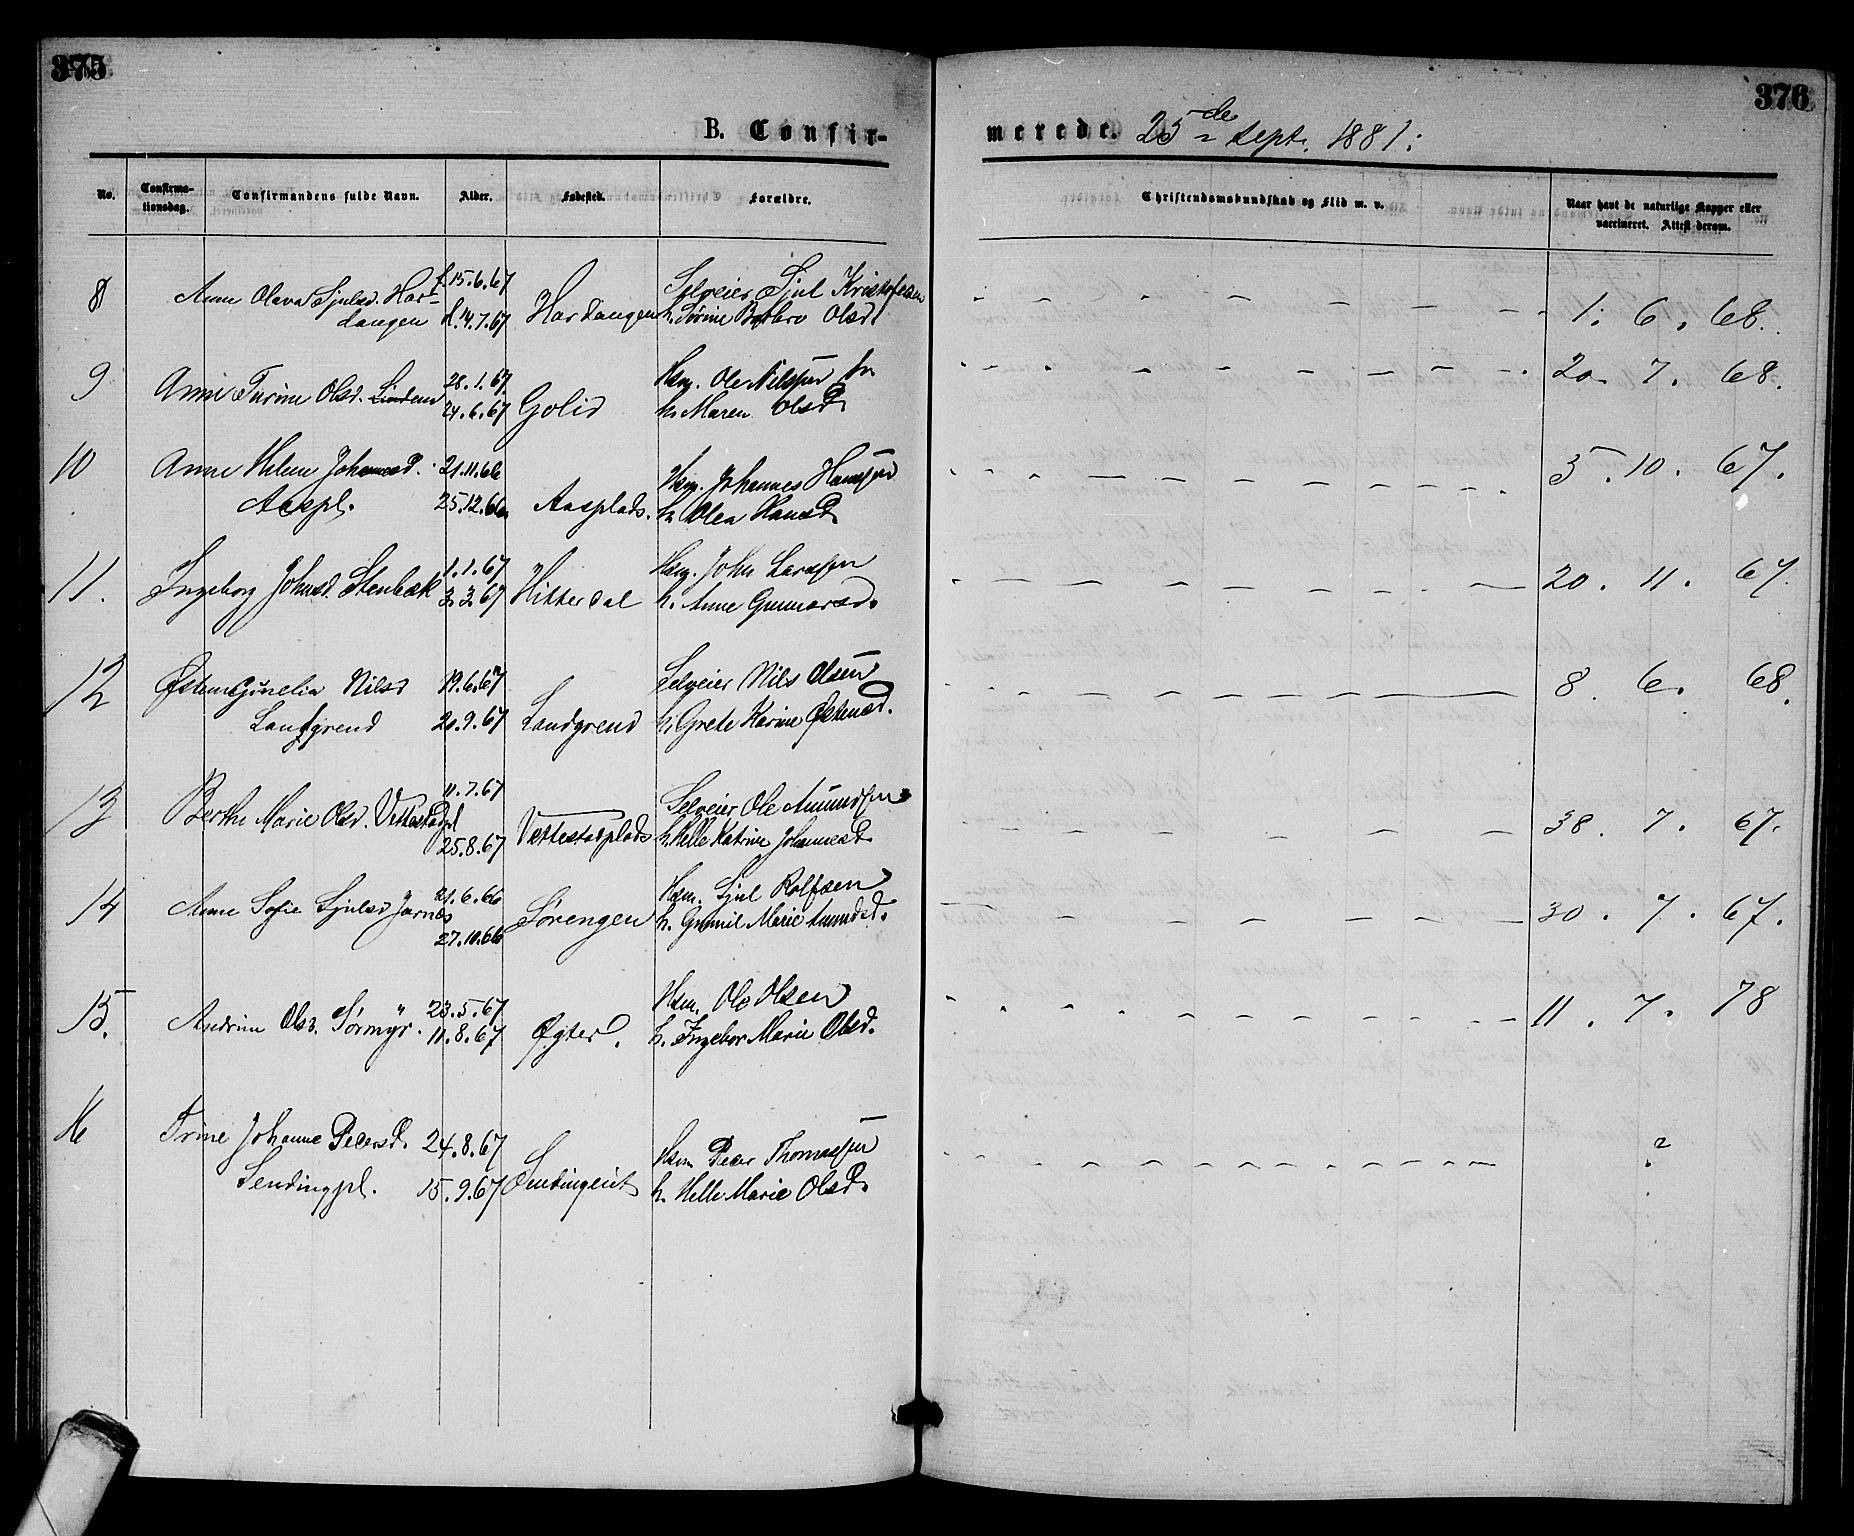 375
376
B. Confir-
merede. 25de Sept. 1881.
No.
Confirma-
tionsdag.
Confirmandens fulde Navn.
Alder.
Fødested.
Forældre.
Christendomskundskab og Flid m. v.
Naar havt de naturlige Kopper eller
vaccineret. Attest derom.
8 Anne Olava Sjulsd. Har- f. 15.6.67 Selveier Sjul Kristofersen
dangen d. 14.7.67 Hardangen h. Sørine Barbro Olsd. 1. 6. 68.
9 28.1.67 Hsm. Ole Nilssen
Anne Olsd. 24.6.67 Golid h. Maren Olsd. 20. 7. 68.
10 Anne Helene Johannesd. 21.11.66 Hsm. Johannes Hanssen
Aaspl. 25.12.66 Aasplads. h. Olea Hansd. 5. 10. 67.
11. 1.1.67 Hsm. John Larssen
Ingeborg Johnsd. Stenbæk 3.3.67 Hitterdal h. Anne Gunnarsd. 20. 11. 67.
12 Nilsd 19.6.67 Selveier Nils Olsen
Landgrend 20.9.67 Landgrend h. Grete Karine Østensd. 8. 6. 68.
13 Berthe Marie Olsd. Vettestadpl 11.7.67 Selveier Ole Amundsen
25.8.67 Vettestadplads h. Helle Katrine Johannesd. 38. 7. 67.
14 Anne Sofie Sjulsd Jarnæs 21.6.66 Hsm. Sjul Rolfsen
27.10.66 Sørengen h. Gunnil Marie Amundsd. 30. 7. 67.
15. 23.5.67 Hsm. Ole Olsen
Andrine Olsd. Sørmyr. 11.8.67 Øgter. h. Ingebor Marie Olsd. 11. 7. 78
16 Trine Johanne Pedersd. 24.8.67 Hsm Peder Thomassen
Sendingpl. 15.9.67 h. Helle Marie Olsd. ?